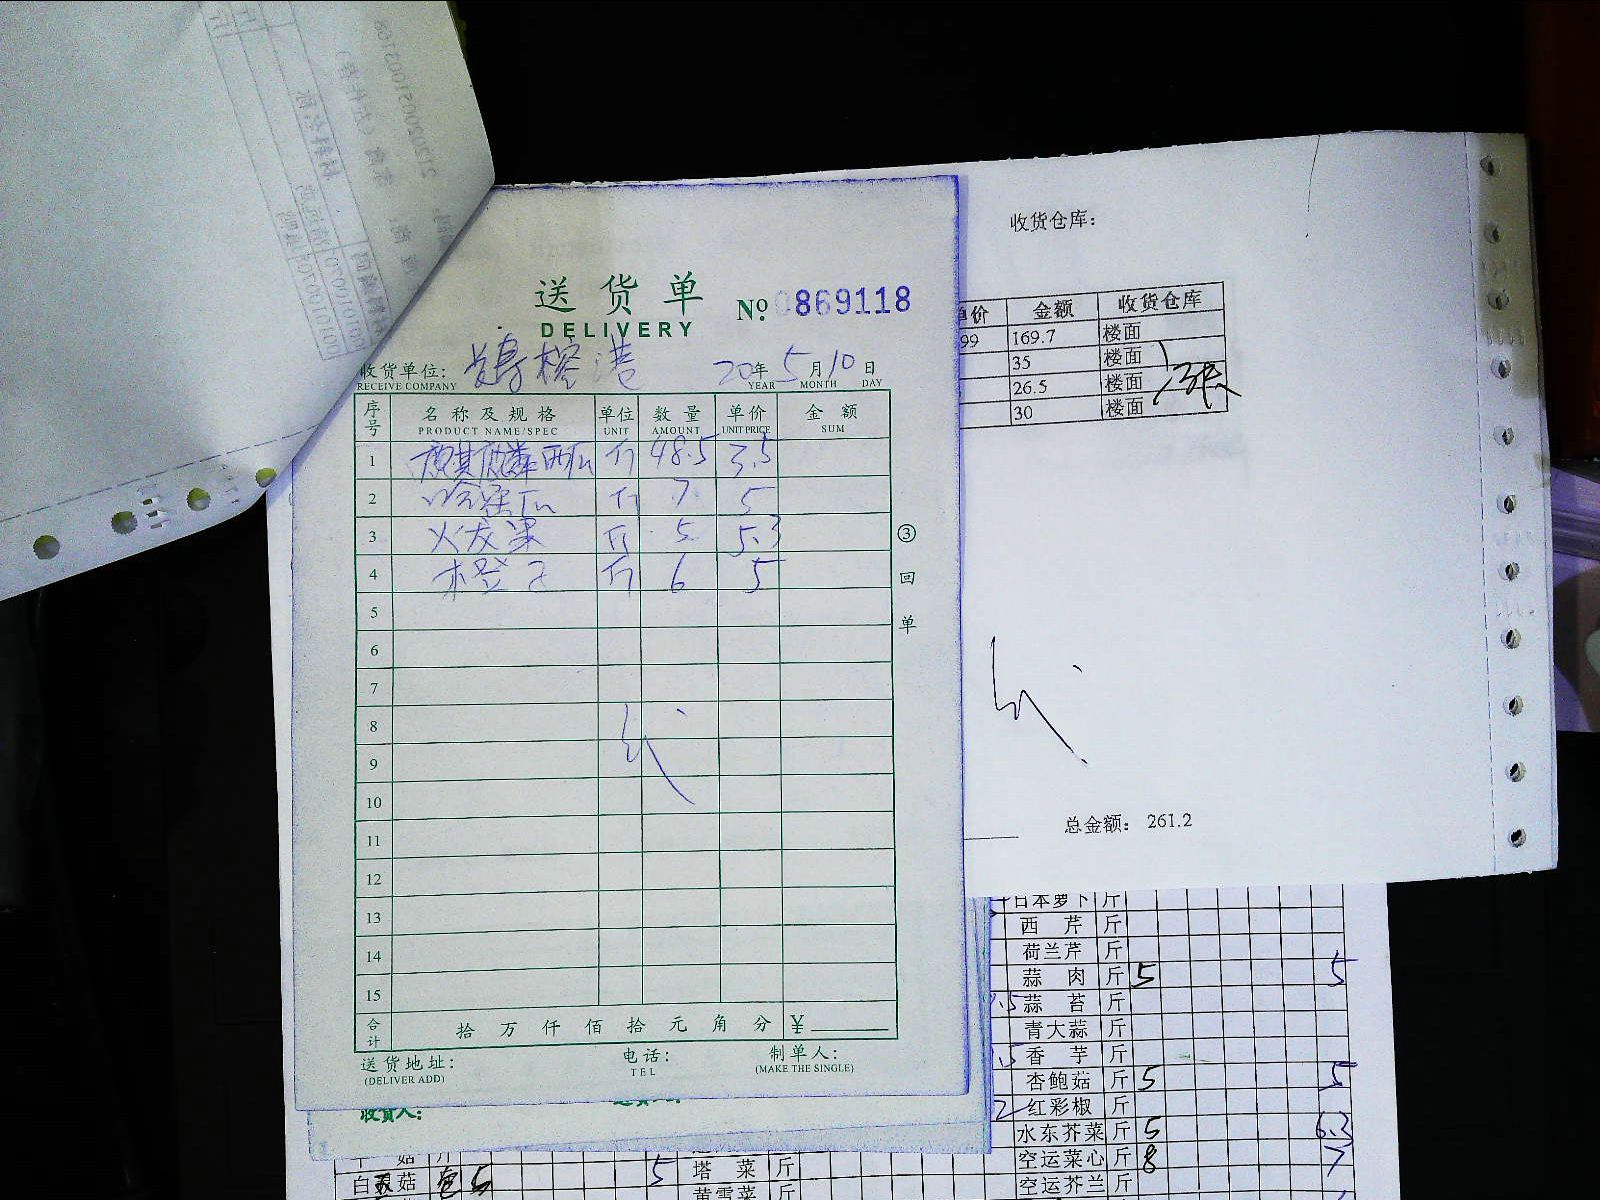 送货单
DELIVERY
No 0869118
收货单位:
RECEIVE COMPANY
20年 5月 10日
YEAR MONTH DAY
序号 名称及规格 单位 数量 单价 金额
PRODUCT NAME/SPEC UNIT AMOUNT UNIT PRICE SUM
1 麒麟西瓜 斤 48.5 3.5
2 哈密瓜 斤 7 5
3 火龙果 斤 5 5.3
4 斤 6 5
5
6
7
8
9
10
11
12
13
14
15
合计 拾 万 仟 佰 拾 元 角 分 ¥
送货地址: 电话: 制单人:
(DELIVER ADD) TEL (MAKE THE SINGLE)
③回单
收货人:
收货仓库:
单价 金额 收货仓库
99 169.7 楼面
35 楼面
26.5 楼面
30 楼面
总金额: 261.2
日本萝卜 斤
西芹 斤
荷兰芹 斤
蒜肉 斤 5 5
蒜苔 斤
青大蒜 斤
香芋 斤
杏鲍菇 斤 5 5
红彩椒 斤
水东芥菜 斤 5 6.3
空运菜心 斤 8 7
空运芥兰 斤
菇 斤
白灵菇 包 5 5 塔菜 斤
黄雪菜 斤